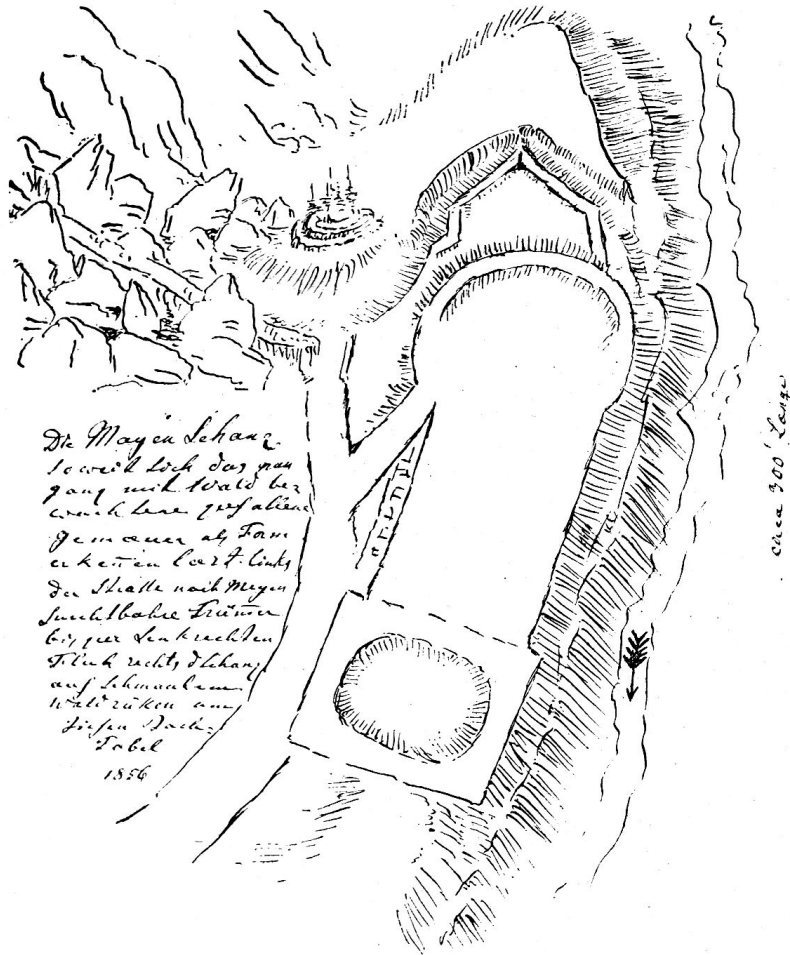 Die Mayen Schanz
soweit sich das nun
ganz mit Wald be
wachsene gefallene
gemäuer als Form
erkennen laest. links
der Straße nach Meyen
furchtbahre Trümmer
bis zur Senkrechten
Flueh rechts d Schanz
auf Schmaalem
Waldrüken am
tiefen Bach
Tobel
1856
circa 300' Länge